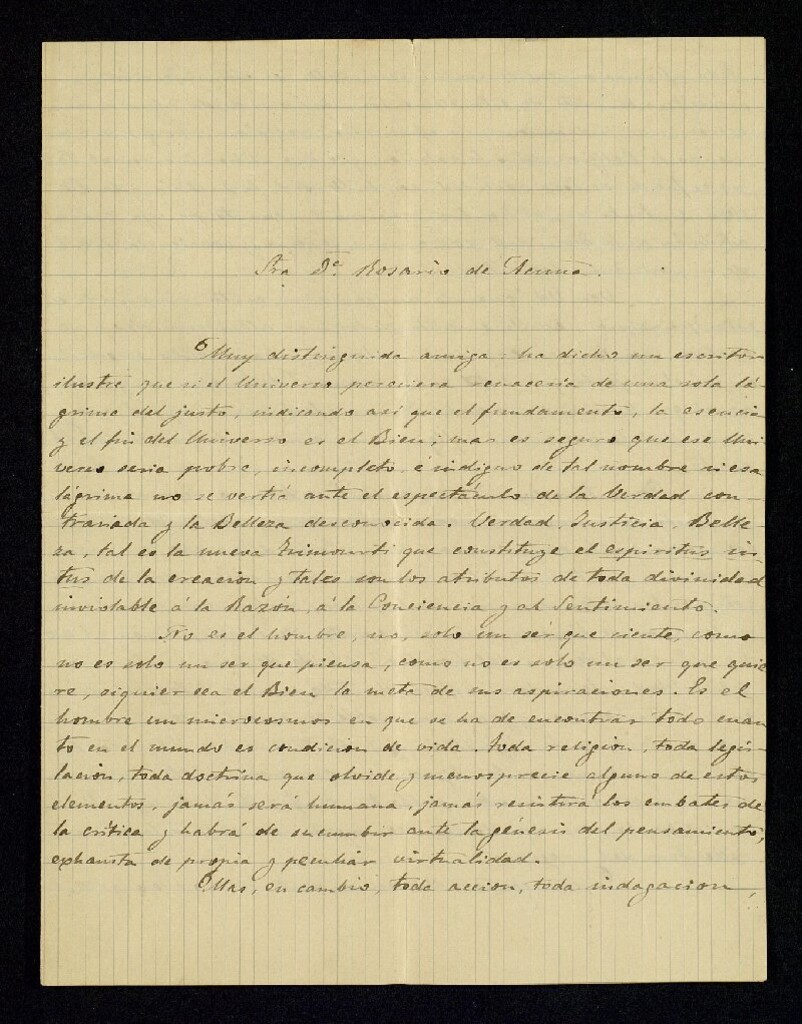 Sra Dª Rosario de Acuña.
Muy distinguida amiga: ha dicho un escritor
ilustre que si el Universo pereciera renacería de una sola lá-
grima del justo, indicando así que el fundamento, la esencia
y el fin del Universo es el Bien; mas es seguro que ese Uni
verso seria pobre, incompleto é indigno de tal nombre si esa
lágrima no se vertió ante el espectáculo de la Verdad con-
trariada y la Belleza desconocida. Verdad, Justicia, Belle-
za, tal es la nueva Trimourti que constituye el espiritus in-
tus de la creacion y tales son los atributos de toda divinidad
inviolable á la Razón, á la Conciencia y al Sentimiento.
No es el hombre, no, solo un sér que siente, como
no es solo un ser que piensa, como no es solo un ser que quie
re, siquier sea el Bien la meta de sus aspiraciones. Es el
hombre un microcosmos en que se ha de encontrar todo cuan
to en el mundo es condicion de vida. Toda religión, toda legis-
lacion, toda doctrina que olvide y menosprecie alguno de estos
elementos, jamás será humana, jamás resistirá los embates de
la crítica y habrá de sucumbir ante la génesis del pensamiento,
exhausta de propia y peculiar virtualidad.
Mas, en cambio, toda accion, toda indagacion,